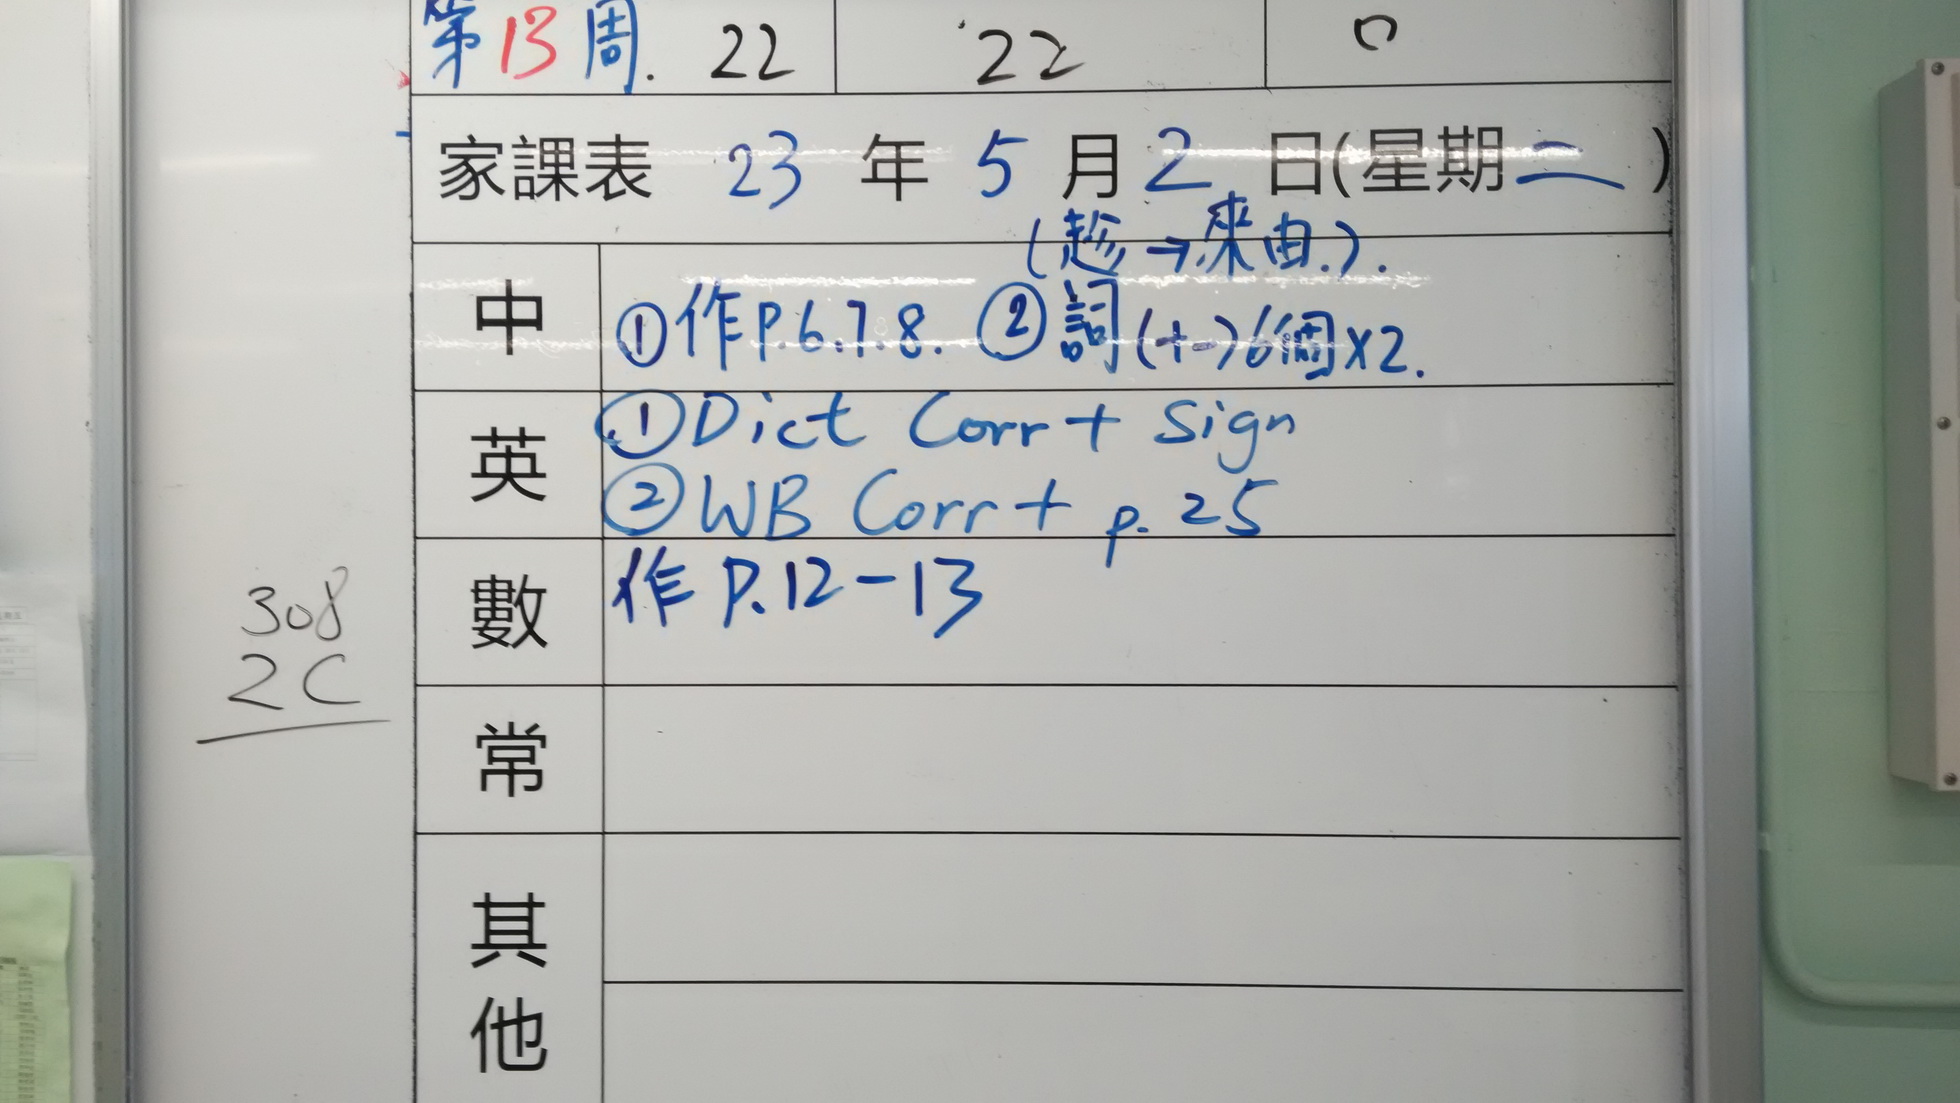 第13周. 22 22 0
家課表 23 年 5 月 2 日(星期二)
(趁→來由.).
中 ①作P.6.7.8. ②詞(十一)6個X2.
英 ①Dict Corr + Sign
②WB Corr + p. 25
數 作 P.12-13
308
2C
常
其
他